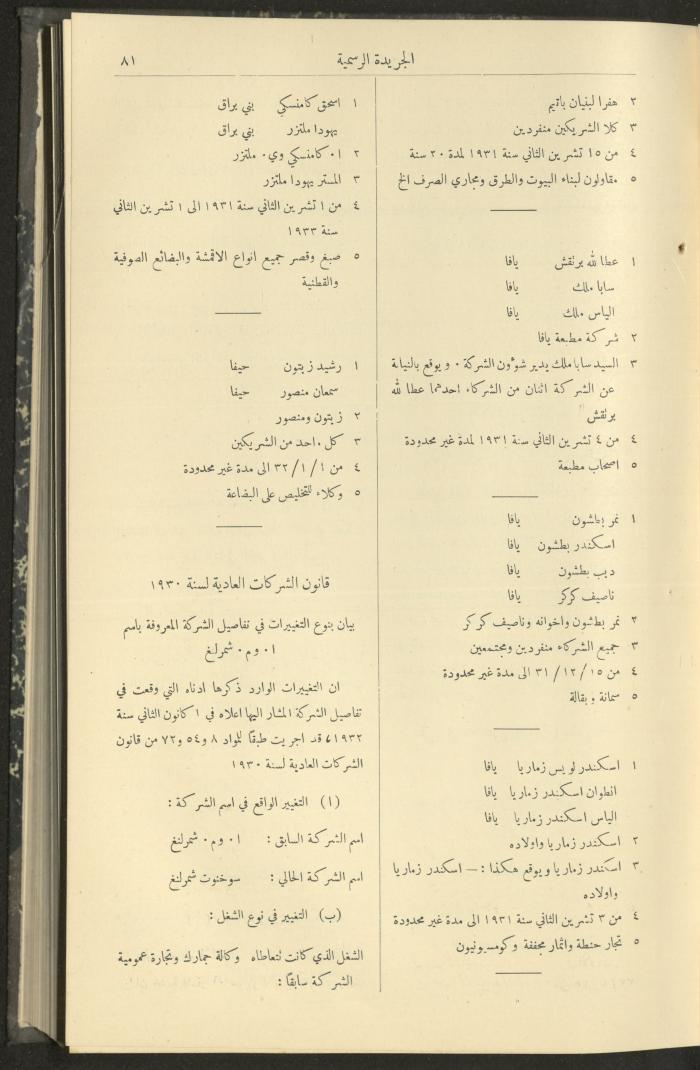 الجريدة الرسمية ٨١
٢ هفرا لبنيان باتيم
٣ كلا الشريكين منفردين
٤ من ١٥ تشرين الثاني سنة ١٩٣١ لمدة ٢٠ سنة
٥ مقاولون لبناء البيوت والطرق ومجاري الصرف الخ
١ عطا لله برنقش يافا
سابا ملك يافا
الياس ملك يافا
٢ شركة مطبعة يافا
٣ السيد سابا ملك يدير شؤون الشركة ٠ ويوقع بالنيابة
عن الشركة اثنان من الشركاء احدهما عطا لله
برنقش
٤ من ٤ تشرين الثاني سنة ١٩٣١ لمدة غير محدودة
٥ اصحاب مطبعة
١ نمر بطشون يافا
اسكندر بطشون يافا
ديب بطشون يافا
ناصيف كركر يافا
٢ نمر بطشون واخوانه وناصيف كركر
٣ جميع الشركاء منفردين ومجتمعين
٤ من ١٥/ ١٢/ ٣١ الى مدة غير محدودة
٥ سمانة وبقالة
١ اسكندر لويس زماريا يافا
انطوان اسكندر زماريا يافا
الياس اسكندر زماريا يافا
٢ اسكندر زماريا واولاده
٣ اسكندر زماريا ويوقع هكذا : — اسكندر زماريا
واولاده
٤ من ٣ تشرين الثاني سنة ١٩٣١ الى مدة غير محدودة
٥ تجار حنطة واثمار مجففة وكومسيونيون
١ اسحق كامنسكي بني براق
يهودا ملتزر بني براق
٢ ا٠ كامنسكي وي٠ ملتزر
٣ المستر يهودا ملتزر
٤ من ١ تشرين الثاني سنة ١٩٣١ الى ١ تشرين الثاني
سنة ١٩٣٣
٥ صبغ وقصر جميع انواع الاقمشة والبضائع الصوفية
والقطنية
١ رشيد زيتون حيفا
سمعان منصور حيفا
٢ زيتون ومنصور
٣ كل واحد من الشريكين
٤ من ١/ ١/ ٣٢ الى مدة غير محدودة
٥ وكلاء للتخليص على البضاعة
قانون الشركات العادية لسنة ١٩٣٠
بيان بنوع التغييرات في تفاصيل الشركة المعروفة باسم
ا٠ وم٠ شمرلنغ
ان التغييرات الوارد ذكرها ادناه التي وقعت في
تفاصيل الشركة المشار اليها اعلاه في ١ كانون الثاني سنة
١٩٣٢، قد اجريت طبقًا للمواد ٨ و٥٤ و٧٢ من قانون
الشركات العادية لسنة ١٩٣٠
(ا) التغيير الواقع في اسم الشركة :
اسم الشركة السابق : ا٠ وم٠ شمرلنغ
اسم الشركة الحالي : سوخنوت شمرلنغ
(ب) التغيير في نوع الشغل :
الشغل الذي كانت تتعاطاه وكالة جمارك وتجارة عمومية
الشركة سابقًا :